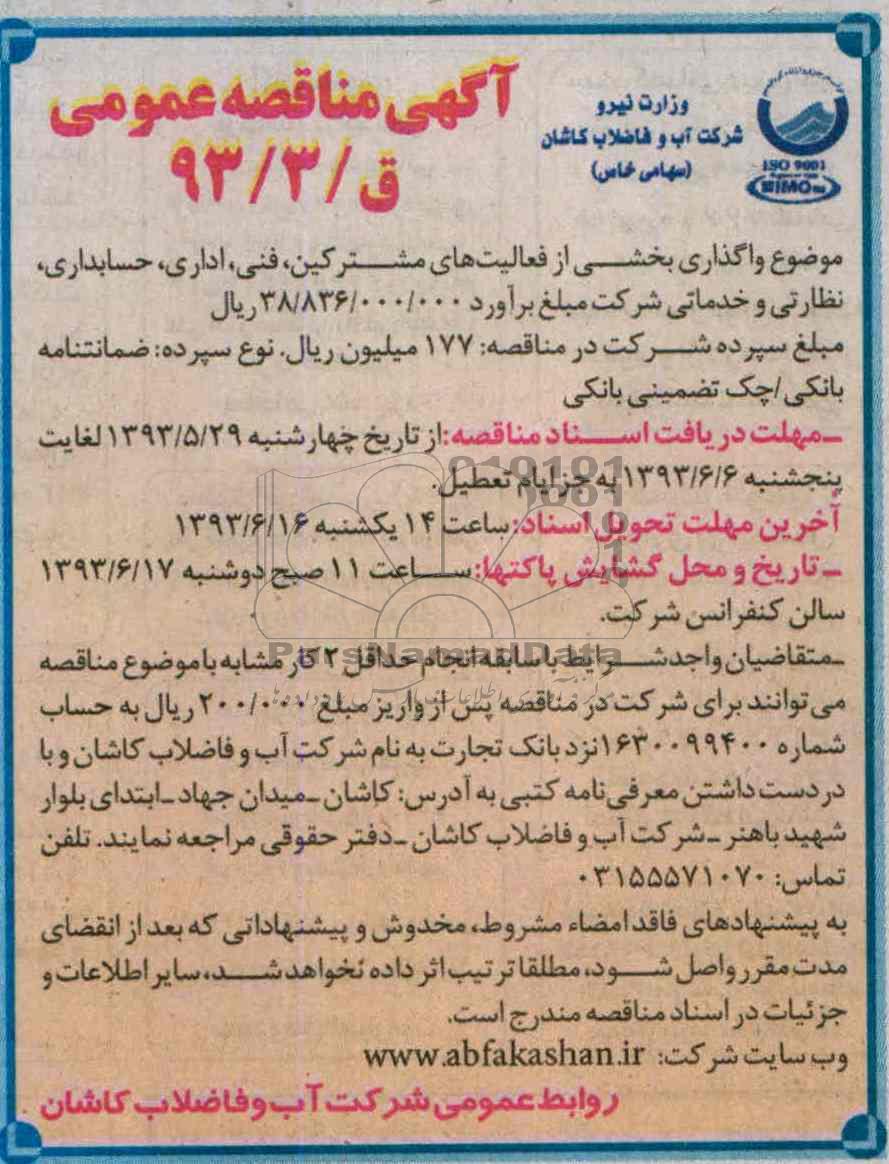 آگهی مناقصه عمومی
ق/۹۳/۳
وزارت نیرو
شرکت آب و فاضلاب کاشان
(سهامی خاص)
ISO 9001
موضوع واگذاری بخشی از فعالیت‌های مشترکین، فنی، اداری، حسابداری،
نظارتی و خدماتی شرکت مبلغ برآورد ۳۸/۸۳۶/۰۰۰/۰۰۰ ریال
مبلغ سپرده شرکت در مناقصه: ۱۷۷ میلیون ریال. نوع سپرده: ضمانتنامه
بانکی/چک تضمینی بانکی
ـمهلت دریافت اسناد مناقصه: از تاریخ چهارشنبه ۱۳۹۳/۵/۲۹ لغایت
پنجشنبه ۱۳۹۳/۶/۶ به جز ایام تعطیل.
آخرین مهلت تحویل اسناد: ساعت ۱۴ یکشنبه ۱۳۹۳/۶/۱۶
ـ تاریخ و محل گشایش پاکتها: ساعت ۱۱ صبح دوشنبه ۱۳۹۳/۶/۱۷
سالن کنفرانس شرکت.
ParsNamadData
ـمتقاضیان واجدشرایط با سابقه انجام حداقل ۲ کار مشابه با موضوع مناقصه
می‌توانند برای شرکت در مناقصه پس از واریز مبلغ ۲۰۰/۰۰۰ ریال به حساب
شماره ۱۶۳۰۰۹۹۴۰۰ نزد بانک تجارت به نام شرکت آب و فاضلاب کاشان و با
در دست داشتن معرفی‌نامه کتبی به آدرس: کاشان ـ میدان جهاد ـ ابتدای بلوار
شهید باهنر ـ شرکت آب و فاضلاب کاشان ـ دفتر حقوقی مراجعه نمایند. تلفن
تماس: ۰۳۱۵۵۵۷۱۰۷۰
به پیشنهادهای فاقد امضاء مشروط، مخدوش و پیشنهاداتی که بعد از انقضای
مدت مقرر واصل شود، مطلقا ترتیب اثر داده نخواهد شد، سایر اطلاعات و
جزئیات در اسناد مناقصه مندرج است.
وب سایت شرکت: www.abfakashan.ir
روابط عمومی شرکت آب و فاضلاب کاشان